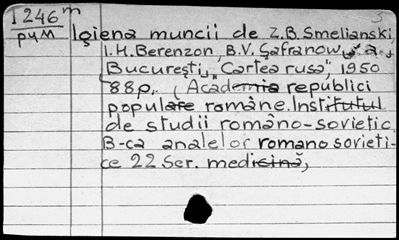 1246 m Igiena muncii de Z.B. Smelianski,
рум I.H. Berenzon, B.V. Șafranow, ș. a.
București, "Cartea rusa", 1950
88p. (Academia republici
populare române. Institutul
de studii româno-sovietic.
B-ca analelor romano sovieti-
ce 22 Ser. medicină,